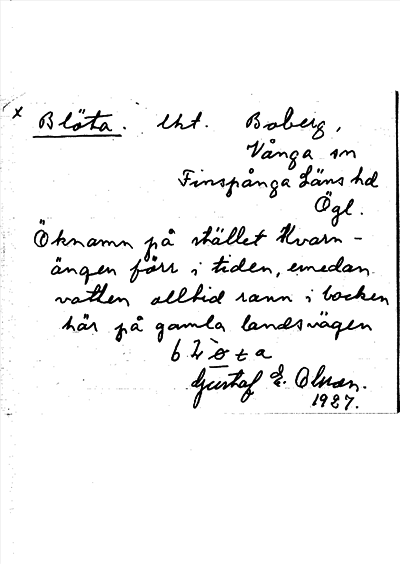 x Blöta. lht. Boberg,
Vånga sn
Finspånga Läns hd
Ögl.
Öknamn på stället Hvarn-
ängen förr i tiden, emedan
vatten alltid rann i backen
här på gamla landsvägen
Gustaf E. Olsson.
1927.